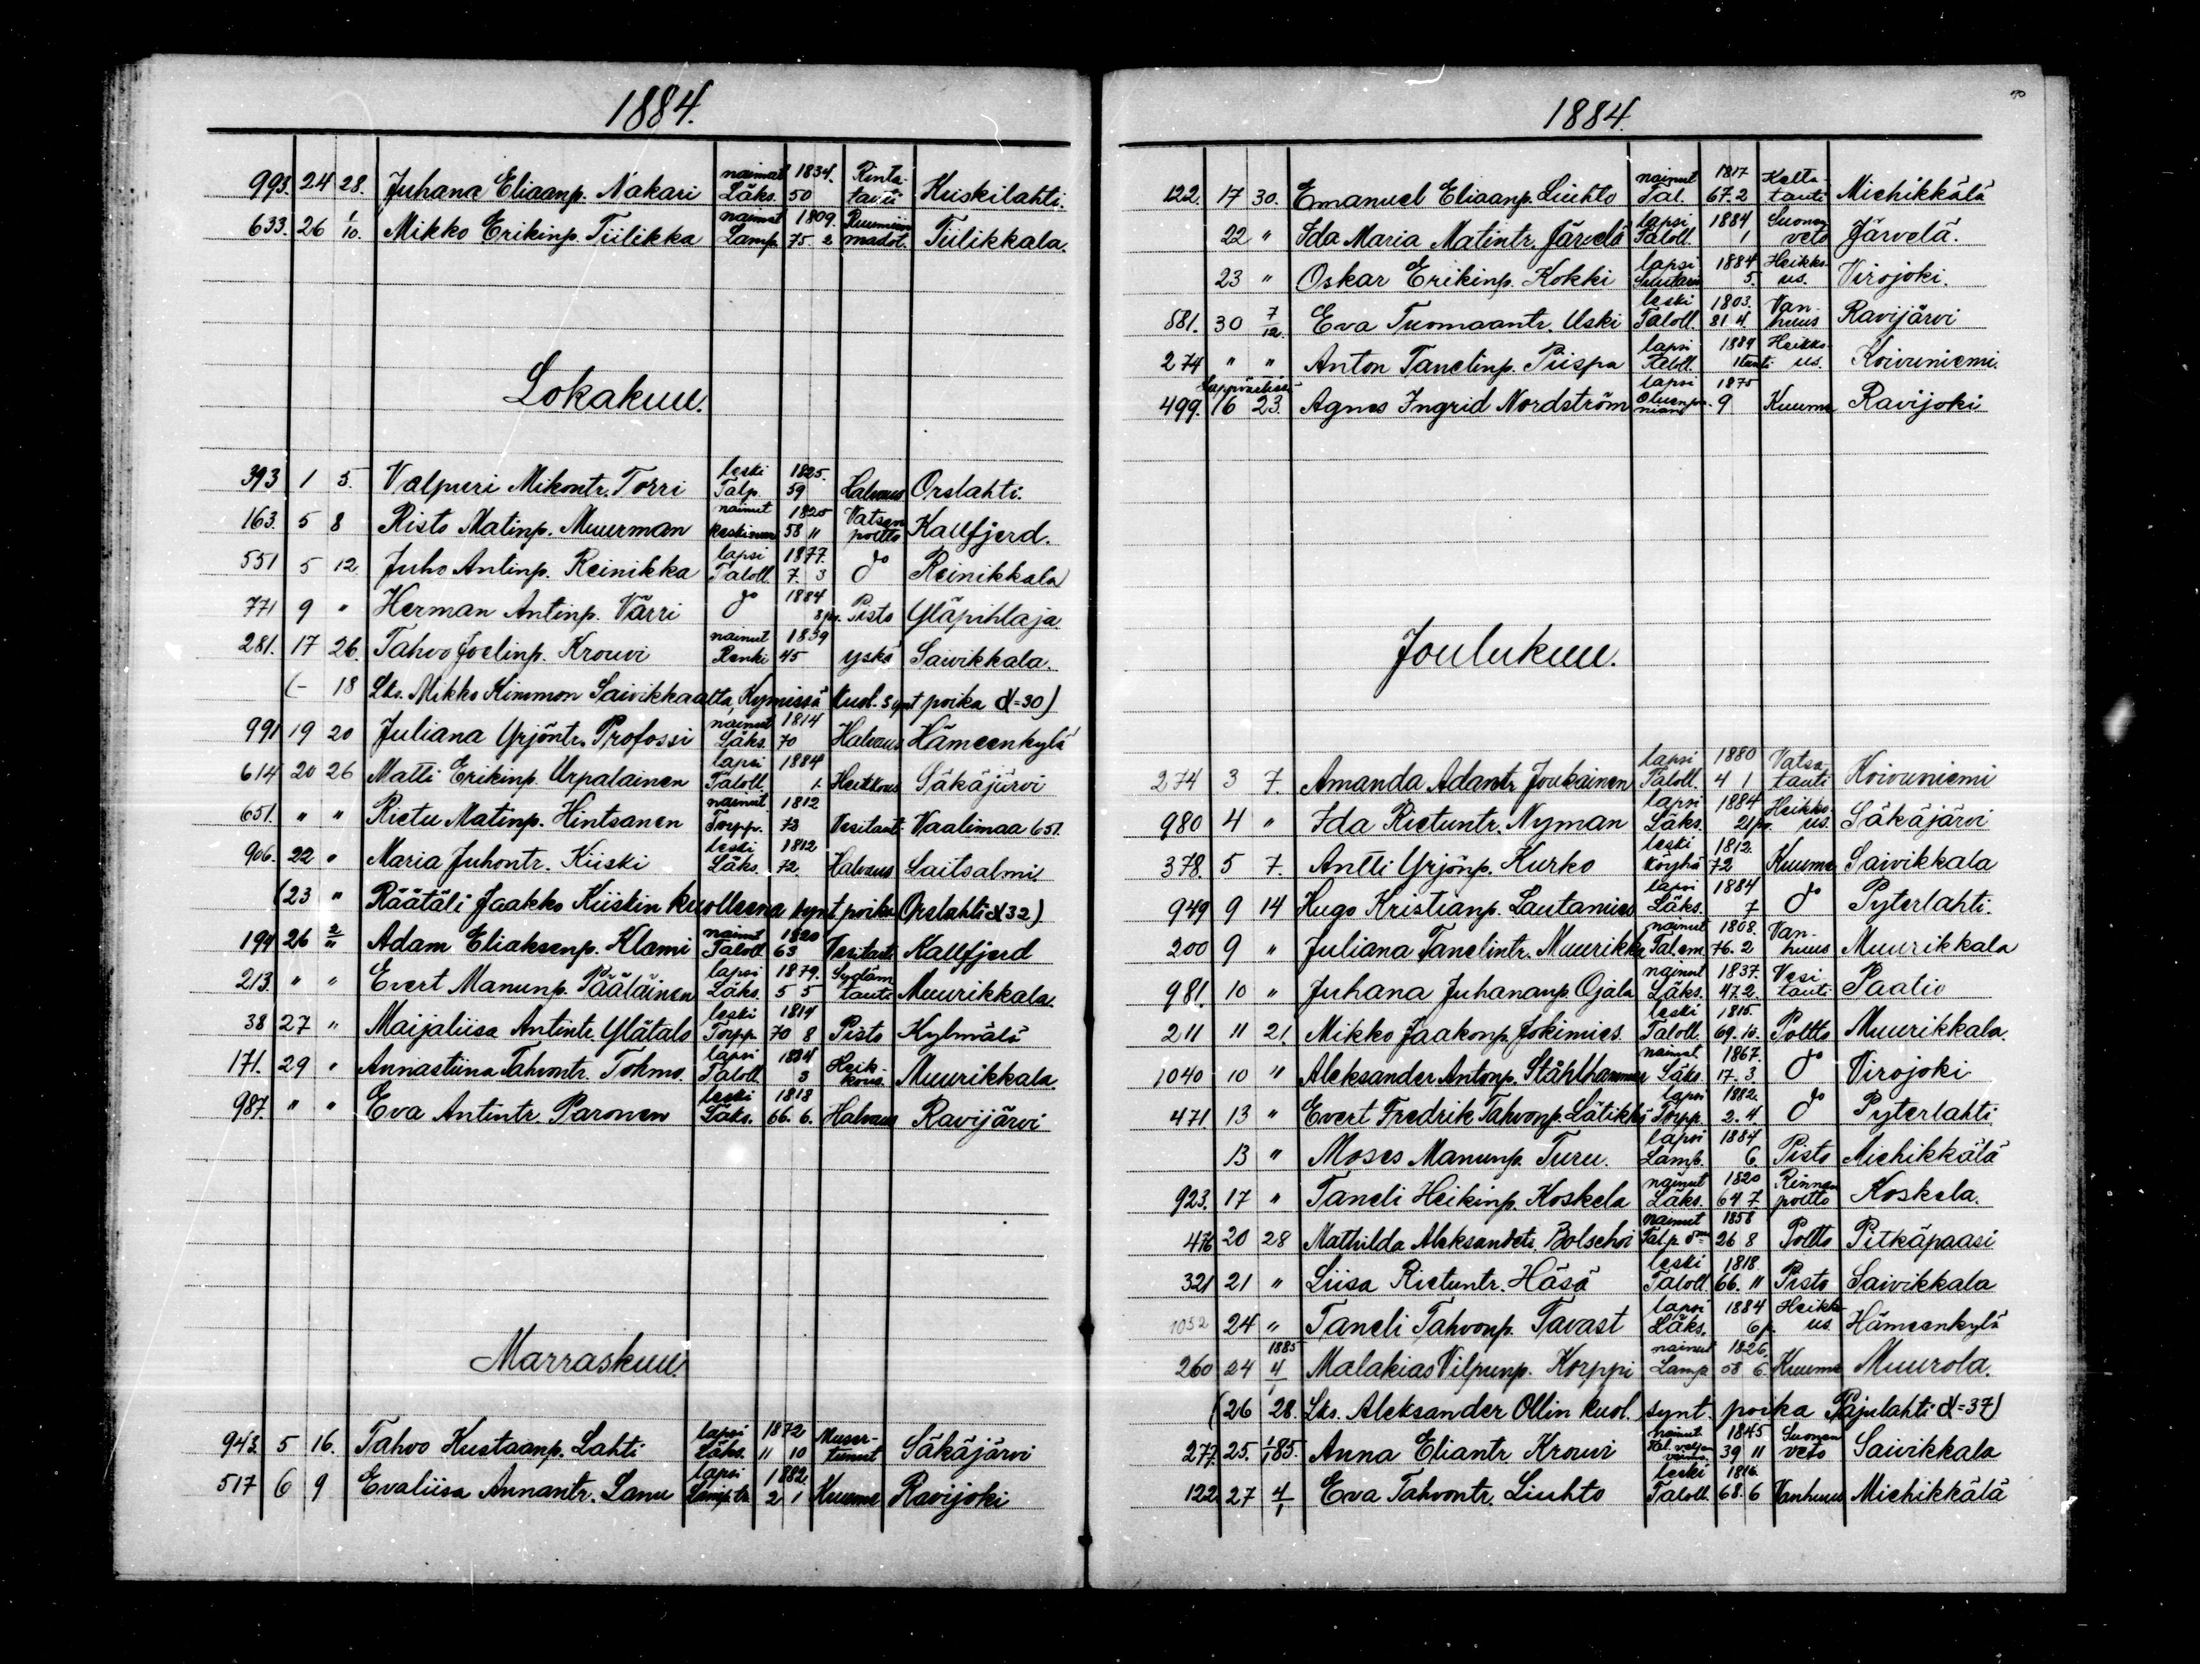 1884.
993. 24 28. Juhana Eliaanp. Nakari nainut Läks. 1834. 50 Rintatauti Kiiskilahti.
633. 26 1/10. Mikko Erikinp. Tiilikka nainut Lamp. 1809. 75 2 Ruumiin madot. Tiilikkala.
Lokakuu.
393 1 5. Valpuri Mikontr. Torri leski Talp. 1825. 59 Halvaus Orslahti.
163. 5 8 Risto Matinp. Muurman nainut 1825 58 11 Vatsanpoltto Kallfjerd.
551 5 12 Juho Antinp. Reinikka lapsi Taloll. 1877. 7. 3 do Reinikkala
771 9 " Herman Antinp. Värri do 1884 8 pv. Pisto Yläpihlaja
281. 17 26. Tahvo Joelinp. Krouvi nainut Renki 1839 45 yskä Saivikkala.
(- 18 Lks. Mikko Kimmon Saivikkaalta, Kymissä kuol. synt poika N=30)
991 19 20 Juliana Yrjöntr. Profossi nainut Läks. 1814 70 Halvaus Hämeenkylä
614 20 26 Matti Erikinp. Urpalainen lapsi Taloll. 1884 1. Heikkous Säkäjärvi
651. " " Rietu Matinp. Hintsanen nainut Torpp. 1812 72 Vesitaut. Vaalimaa 651.
906. 22 " Maria Juhontr. Kiiski leski Läks. 1812 72. Halvaus Laitsalmi.
(23 " Räätäli Jaakko Kiiskin kuolleena synt. poika Orslahti N 32)
194 26 2/11 Adam Eliaksenp. Klami nainut Taloll. 1820 63 Vesitauti Kallfjerd
213. " " Evert Manunp. Pääläinen lapsi Läks. 1879. 5 5 Sydämtauti Muurikkala.
38 27 " Maijaliisa Antintr. Ylätalo leski Torpp. 1814 70 8 Pisto Kylmälä
171. 29 " Annastiina Tahvontr. Tokmo. lapsi Taloll. 1884 3 Heikkous. Muurikkala.
987. " " Eva Antintr. Paronen leski Läks. 1818 66. 6. Halvaus Ravijärvi
Marraskuu.
943. 5 16. Tahvo Kustaanp. Lahti lapsi Läks. 1872 11 10 Musertunut Säkäjärvi
517 6 9 Evaliisa Annantr. Lanu lapsi 1882 2 1 Kuume Ravijoki
1884.
122. 17 30. Emanuel Eliaanp. Liuhto nainut Tal. 1817 67. 2 Keltatauti Miehikkälä
22 " Ida Maria Matintr. Järvelä lapsi Taloll. 1884 1 Suonenveto Järvelä.
23 " Oskar Erikinp. Kokki lapsi Suutarin 1884 5. Heikkous. Virojoki.
581. 30 7/12. Eva Tuomaantr. Uski leski Taloll. 1803. 81 4. Vanhuus Ravijärvi
274 " " Anton Tanelinp. Piispa lapsi Taloll. 1884 1 tunti Heikkous. Koivuniemi.
499. Lappvedissä 16 23. Agnes Ingrid Nordström lapsi Oluenpanian 1875 9 Kuume Ravijoki
Joulukuu.
274 3 7. Amanda Adamtr. Joukainen lapsi Taloll. 1880 4 1 Vatsatauti Koivuniemi
980 4 " Ida Rietuntr. Nyman lapsi Läks. 1884 21 pv. Heikkous. Säkäjärvi
378. 5 7. Antti Yrjönp. Kurko leski Köyhä 1812. 72 Kuume Saivikkala
949 9 14 Hugo Kristianp. Lautamies lapsi Läks. 1884 7 do Pyterlahti.
200 9 " Juliana Tanelintr. Muurikka nainut Tal.em. 1808. 76. 2 Vanhuus Muurikkala
981. 10 " Juhana Juhananp. Ojala nainut Läks. 1837. 47 2. Vesitauti Paatio
211 11 21. Mikko Jaakonp. Jokimies leski Taloll. 1815. 69. 10. Poltto Muurikkala.
1040 10 " Aleksander Antonp. Ståhlhammar naimat. Läks. 1867. 17. 3. do Virojoki
471. 13 " Evert Fredrik Tahvonp. Lätikkö lapsi Torpp. 1882. 2. 4. do Pyterlahti
13 " Moses Manunp. Turu. lapsi Lamp. 1884 6 Pisto Miehikkälä
923. 17 " Taneli Heikinp. Koskela nainut Läks. 1820 64 7. Rinnanpoltto Koskela.
476 20 28 Mathilda Aleksandetr. Bolschoi nainut Talp. 1858 26 8 Poltto Pitkäpaasi
321 21 " Liisa Rietuntr. Häsä leski Taloll. 1818. 66. 11 Pisto Saivikkala
1052 24 " Taneli Tahvonp. Tavast lapsi Läks. 1884 6 p. Heikkous Hämeenkylä
260 24 1885 4/1 Malakias Vilpunp. Korppi nainut Lamp. 1826. 58 6. Kuume Muurola.
(26 28. Lks. Aleksander Ollin kuol. synt. poika Pajulahti N=37)
277. 25. 1/1 85. Anna Eliantr Krouvi nainut 1845 39 11 Suonenveto Saivikkala
122 27 4/1 Eva Tahvontr. Liuhto leski Taloll. 1816. 68. 6 Vanhuus Miehikkälä